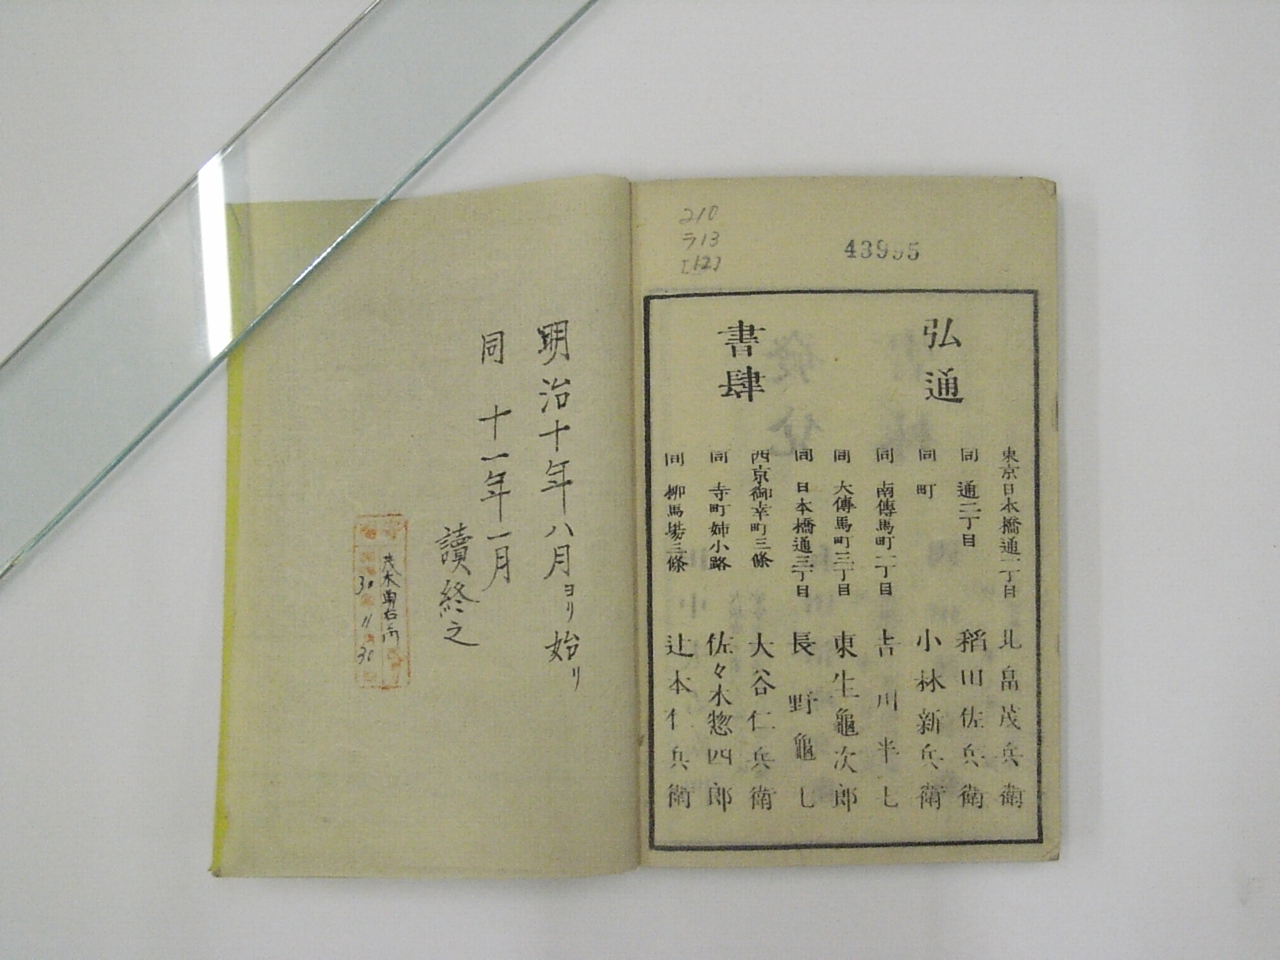 210
ラ13
[12]
43995
弘通
書肆
東京日本橋通一丁目 北畠茂兵衛
同 通二丁目 稻田佐兵衛
同 町 小林新兵衛
同 南傳馬町一丁目 吉川半七
同 大傳馬町三丁目 東生龜次郎
同 日本橋通三丁目 長野龜七
西京御幸町三條 大谷仁兵衛
同 寺町姉小路 佐々木惣四郎
同 柳馬塲三條 辻本仁兵衛
明治十年八月ヨリ始リ
同 十一年一月
讀終之
30 11 30